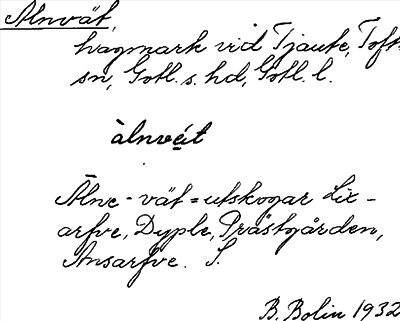 Alnvät,
hagmark vid Tjaute, Tofta
sn, Gotl. s. hd, Gotl. l.
àlnvéit
Älne-vät = utskogar Lix-
arfve, Dyple, Prästgården,
Ansarfve. S.
B. Bolin 1932